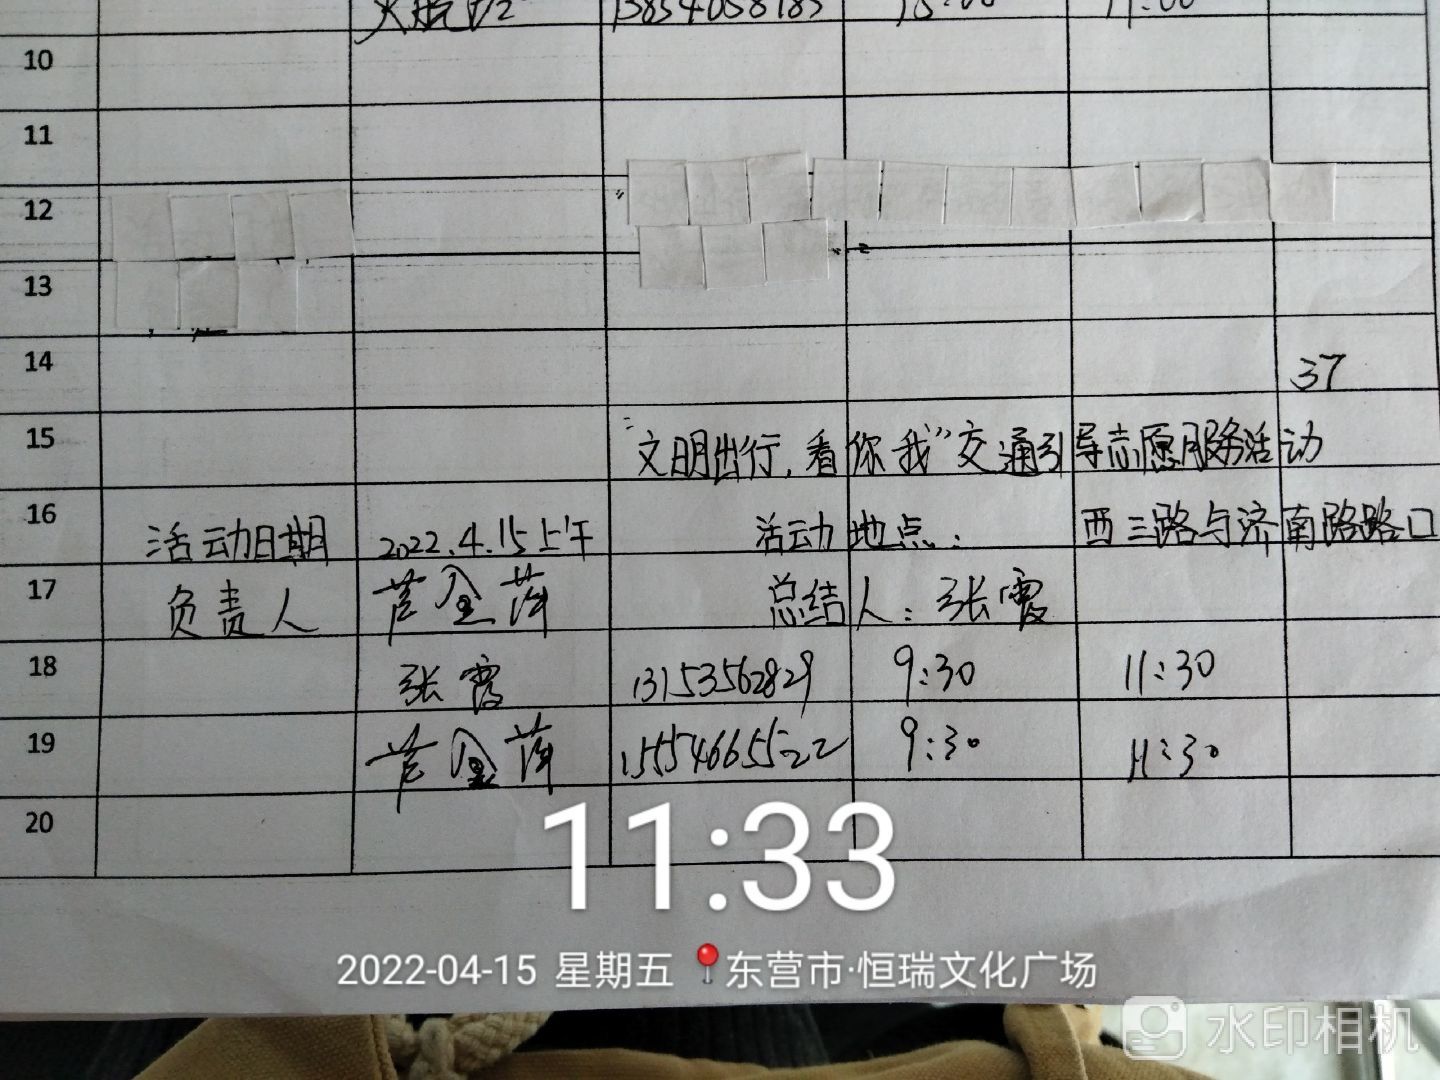 13854058183 15:00 17:00
10
11
12
13
14 37
15 “文明出行,看你我”交通引导志愿服务活动
16 活动日期 2022.4.15上午 活动地点: 西三路与济南路路口
17 负责人 芦金萍 总结人:张霞
18 张霞 13153562829 9:30 11:30
19 芦金萍 15554665522 9:30 11:30
20
11:33
2022-04-15 星期五 东营市·恒瑞文化广场
水印相机